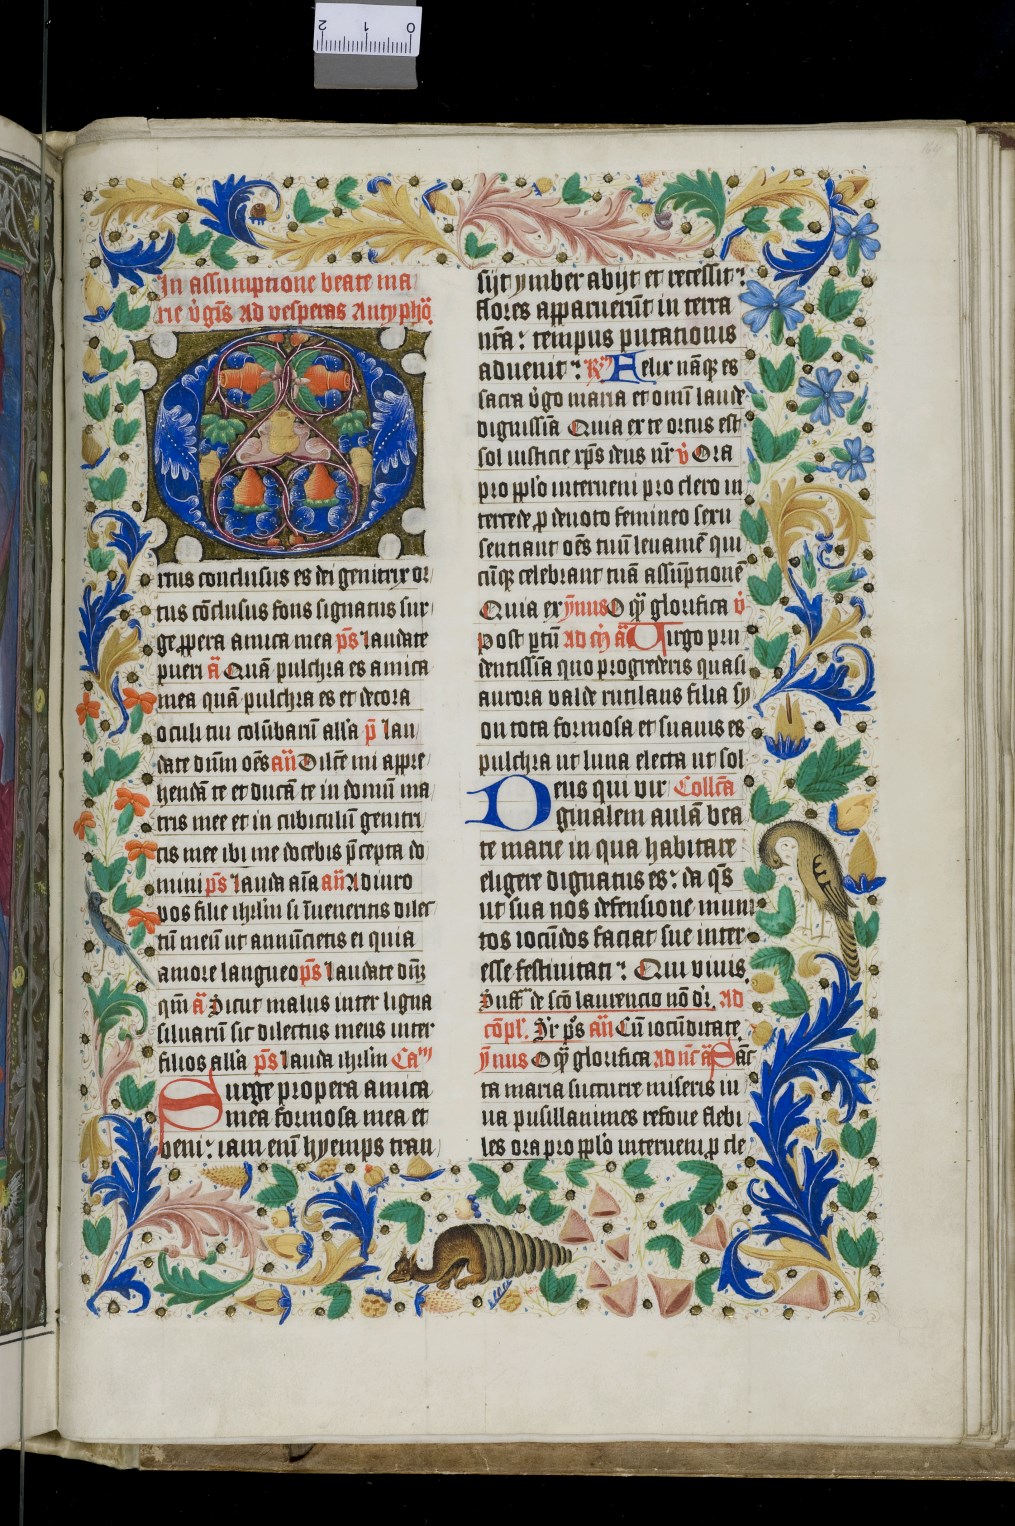 2 1 0
In assumptione beate ma
rie v̄gīs Ad vesperas Antyphō
rtus conclusus es dei genitrix or
tus cōclusus fons signatus sur
ge ꝓpera amica mea p̄s laudate
pueri a̅ Quā pulchra es amica
mea quā pulchra es et decora
oculi tui colūbarū alla p̄ lau
date dn̄m oēs an̄ Dilcē mi appre
hendā te et ducā te in domū ma
tris mee et in cubiculū genitri
cis mee ibi me docebis p̄cepta do
mini p̄s lauda aīa an̄ Adiuro
vos filie ihrlm si īueneritis dilec
tū meū ut annūcietis ei quia
amore langueo p̄s laudate dn̄ꝫ
qm̄ a̅ Sicut malus inter ligna
siluarū sic dilectus meus inter
filios alla p̄s lauda ihrlm Cam
Surge propera amica
mea formosa mea et
veni: iam enī hyemps tran
sijt ymber abijt et recessit:
flores apparuerūt in terra
nr̄a: tempus putationis
advenit: R Felix nāqꝫ es
sacra v̄go maria et omī laude
dignissīa Quia ex te ortus est
sol iusticie xp̄s deus nr̄ v̄ Ora
pro pplo interueni pro clero in
tercede ꝓ deuoto femineo sexu
sentiant oēs tuū leuamē qui
cūqꝫ celebrant tuā assūptionē
Quia ex ȳnus O qꝫ glorifica v̄
Post ptū ad m̄ a̅ Virgo pru
dentissīa quo progrederis quasi
aurora valde rutilans filia sy
on tota formosa et suauis es
pulchra ut luna electa ut sol
Deus qui vir Collcā
ginalem aulā bea
te marie in qua habitare
eligere dignatus es: da qs̄
ut sua nos defensione muni
tos iocūdos faciat sue inter
esse festiuitati: Qui viuis
Suff de scō laurencio nō dr. Ad
cōpl. Dr ps an̄ Cū iocūditate
ȳnus O qꝫ glorifica ad nc̄ a̅ Sāc
ta maria succurre miseris iu
ua pusillanimes refoue flebi
les ora pro pplo interueni ꝓ cle